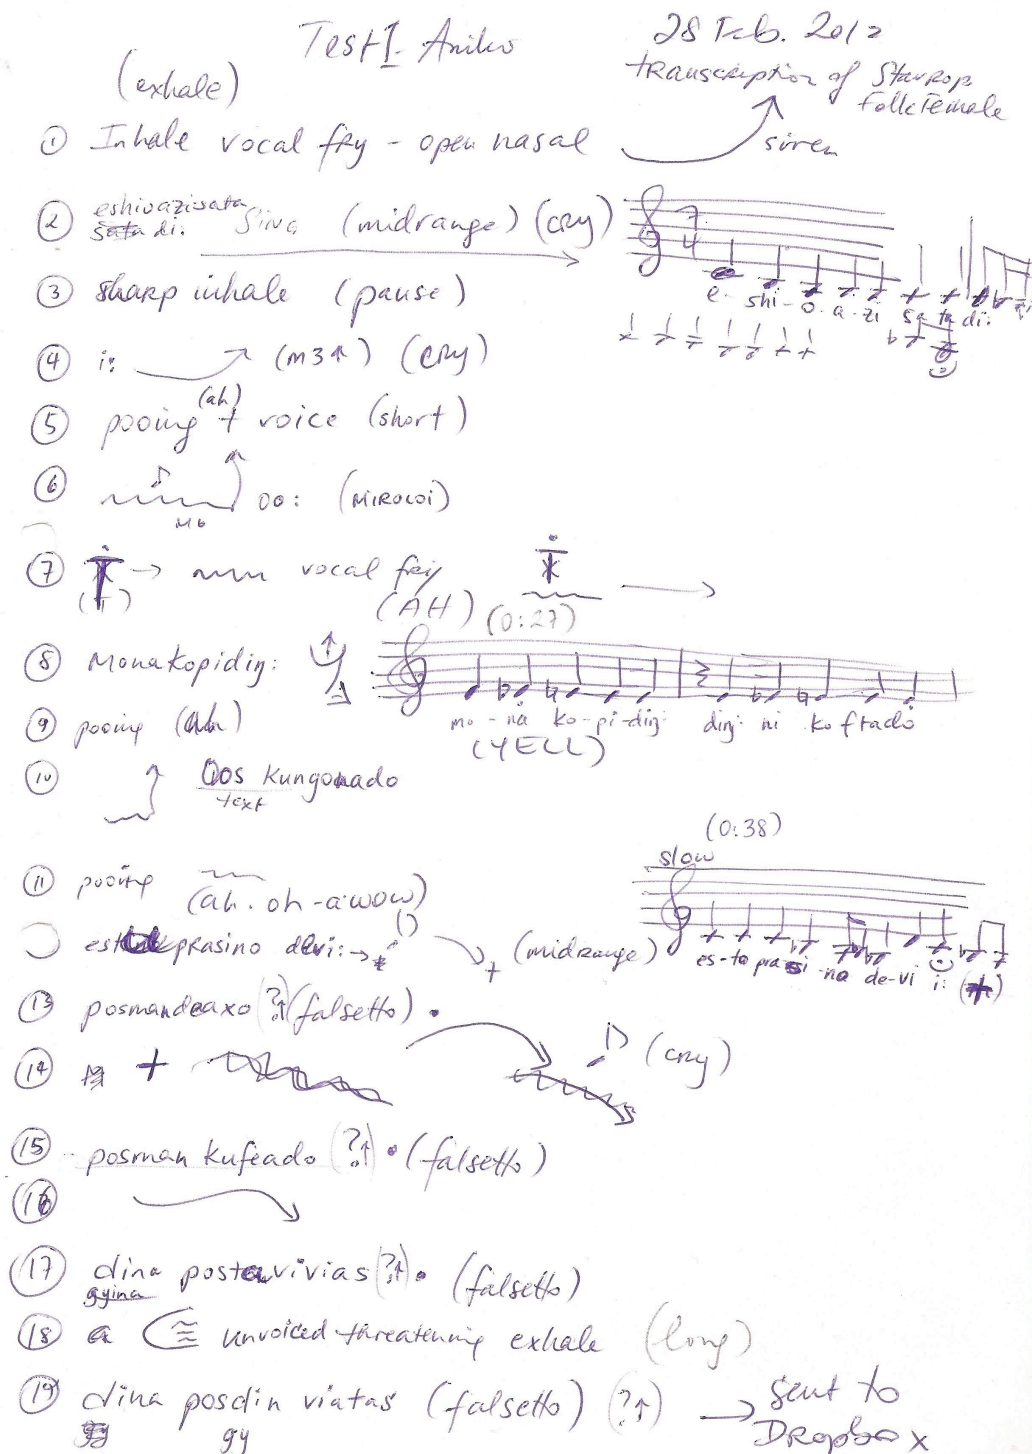 Test 1 Aniko 28 Feb. 2012
transcription of Stavrop
folk Female
(exhale)
① Inhale vocal fry - open nasal siren
② eshioazisata
di: Siva (midrange) (cry) 7 4
e - shi - o - a - zi sa ta di:
③ sharp inhale (pause)
④ i: (m3↑) (cry)
(ah)
⑤ pooing + voice (short)
⑥ oo: (MIROLOI)
⑦ → vocal fry
(AH) (0:27)
⑧ Monakopidin:
mo - na ko - pi - din din - ni koftado
(YELL)
⑨ pooing (ah)
⑩ Oos kungonado
text
(0:38)
slow
⑪ pooing (ah. oh - awow)
prasino devi: → (midrange)
es - to pra si - na de - vi i:
⑬ posmandeaxo (?↑) (falsetto) •
⑭ + (cry)
⑮ posman kufeado (?↑) • (falsetto)
⑯
⑰ dina postavivias (?↑) • (falsetto)
gyina
⑱ a unvoiced threatening exhale (long)
⑲ dina posdin viatas (falsetto) (?↑) → sent to
gy Dropbox